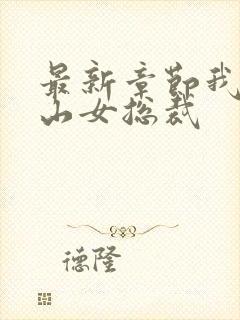 最新章节我
山女总裁
德隆